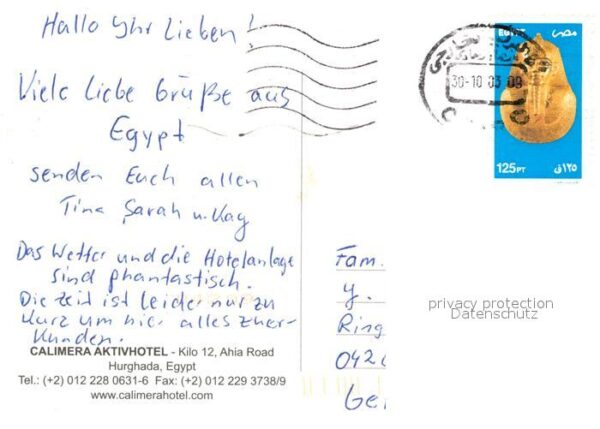 Hallo Yhr Lieben!
Viele liebe Grüße aus
Egypt
senden Euch allen
Tina Sarah u. Kay
Das Wetter und die Hotelanlage
sind phantastisch.
Die Zeit ist leider nur zu
kurz um hier alles zuer-
kunden.
CALIMERA AKTIVHOTEL - Kilo 12, Ahia Road
Hurghada, Egypt
Tel.: (+2) 012 228 0631-6 Fax: (+2) 012 229 3738/9
www.calimerahotel.com
EGYPT مصر
125PT ١٢٥ق
30-10 03
Fam.
y.
Ring
042
Ge
privacy protection
Datenschutz